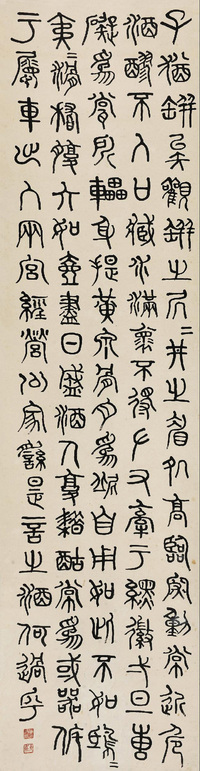 子猶缾矣觀缾之凥〻井之眉処高臨深動常近危
酒醪不入口臧水滿褱不得𠂇又牽于纆徽一旦叀
礙爲瓽所轠身提黃泉骨肉爲泥自用如此不如鴟〻
夷〻滑稽腹大如壺盡日盛酒人復藉酤常爲或器
于屬車出入兩宮經營公家繇是言之酒何過乎